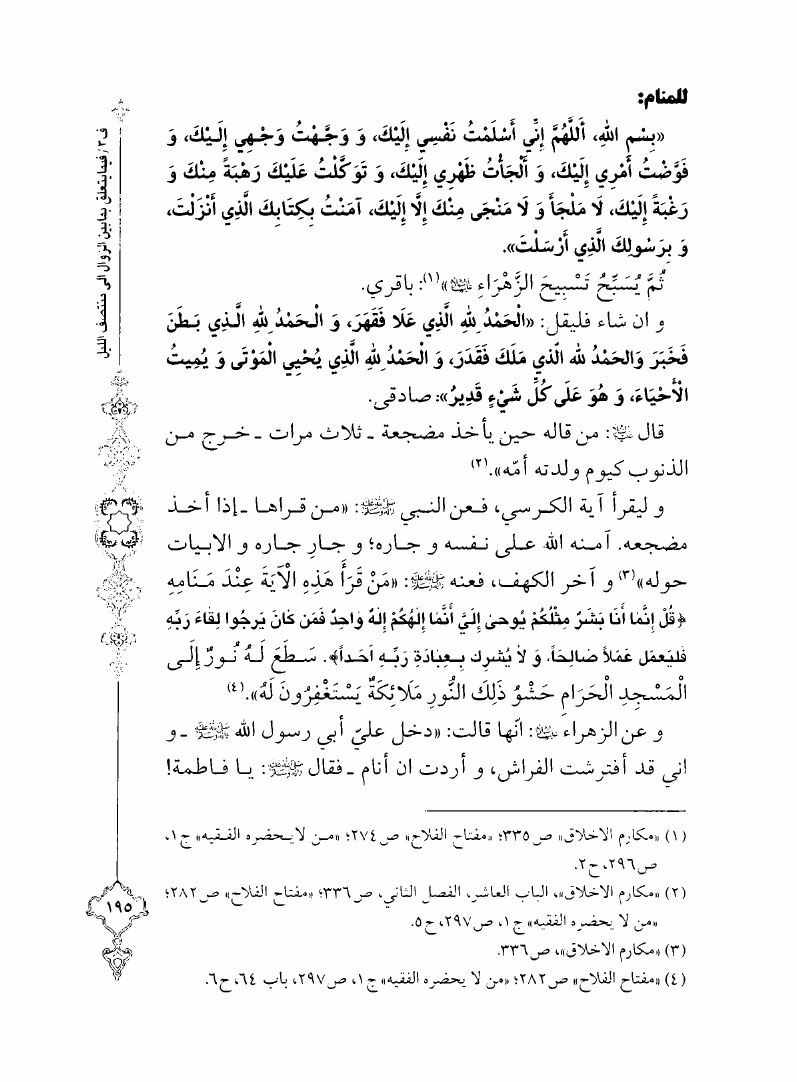 للمنام:
«بِسْمِ اللهِ، أَللّٰهُمَّ إِنِّي أَسْلَمْتُ نَفْسِي إِلَيْكَ، وَ وَجَّهْتُ وَجْهِي إِلَيْكَ، وَ
فَوَّضْتُ أَمْرِي إِلَيْكَ، وَ أَلْجَأْتُ ظَهْرِي إِلَيْكَ، وَ تَوَكَّلْتُ عَلَيْكَ رَهْبَةً مِنْكَ وَ
رَغْبَةً إِلَيْكَ، لَا مَلْجَأَ وَ لَا مَنْجَى مِنْكَ إِلَّا إِلَيْكَ، آمَنْتُ بِكِتَابِكَ الَّذِي أَنْزَلْتَ،
وَ بِرَسُولِكَ الَّذِي أَرْسَلْتَ».
ثُمَّ يُسَبِّحُ تَسْبِيحَ الزَّهْرَاءِ عليها السلام»(١): باقري.
و ان شاء فليقل: «الْحَمْدُ لِلهِ الَّذِي عَلَا فَقَهَرَ، وَ الْحَمْدُ لِلهِ الَّذِي بَطَنَ
فَخَبَرَ وَالحَمْدُ لله الّذي مَلَكَ فَقَدَرَ، وَ الْحَمْدُ لِلهِ الَّذِي يُحْيِي الْمَوْتَى وَ يُمِيتُ
الْأَحْيَاءَ، وَ هُوَ عَلَى كُلِّ شَيْءٍ قَدِيرٌ»: صادقى.
قال عليه السلام: من قاله حين يأخذ مضجعة ـ ثلاث مرات ـ خرج من
الذنوب كيوم ولدته أمّه».(٢)
و ليقرأ آية الكرسي، فعن النبي صلى الله عليه وآله: «من قراها ـ إذا أخذ
مضجعه. آمنه الله على نفسه و جاره؛ و جارِ جاره و الابيات
حوله»(٣) و آخر الكهف، فعنه صلى الله عليه وآله: «مَنْ قَرَأَ هَذِهِ الْآيَةَ عِنْدَ مَنَامِهِ
﴿قُلْ إِنَّمَا أَنَا بَشَرٌ مِثْلُكُمْ يُوحىٰ إِلَيَّ أَنَّمَا إِلٰهُكُمْ إِلهٌ وَاحِدٌ فَمَن كَانَ يَرجُوا لِقَاءَ رَبِّهِ
فليَعمَل عَمَلاً صَالِحَاً، وَ لاٰ يُشرِك بِعِبَادَةِ رَبِّهِ اَحَداً﴾. سَطَعَ لَهُ نُورٌ إِلَى
الْمَسْجِدِ الْحَرَامِ حَشْوُ ذَلِكَ النُّورِ مَلَائِكَةٌ يَسْتَغْفِرُونَ لَهُ».(٤)
و عن الزهراء عليها السلام: انّها قالت: «دخل عليّ أبي رسول الله صلى الله عليه وآله ـ و
اني قد أفترشت الفراش، و أردت ان أنام ـ فقال صلى الله عليه وآله: يا فاطمة!
(١) «مكارم الاخلاق» ص ٣٣٥؛ «مفتاح الفلاح» ص ٢٧٤؛ «من لا يحضره الفقيه» ج ١،
ص ٢٩٦، ح ٢.
(٢) «مكارم الاخلاق»، الباب العاشر، الفصل الثاني، ص ٣٣٦؛ «مفتاح الفلاح» ص ٢٨٢؛
«من لا يحضره الفقيه» ج ١، ص ٢٩٧، ح ٥.
(٣) «مكارم الاخلاق»، ص ٣٣٦.
(٤) «مفتاح الفلاح» ص ٢٨٢؛ «من لا يحضره الفقيه» ج ١، ص ٢٩٧، باب ٦٤، ح ٦.
ف ٣ / فيما يتعلق بما بين الزوال الى منتصف الليل
١٩٥